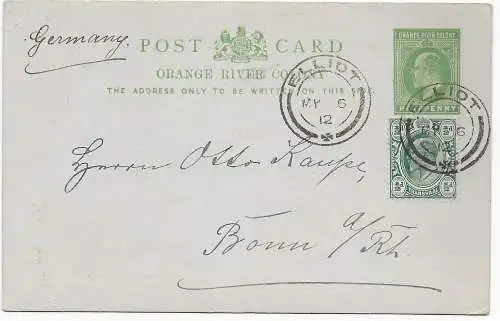 Germany.
POST CARD
ORANGE RIVER COLONY
THE ADDRESS ONLY TO BE WRITTEN ON THIS SIDE.
ORANGE RIVER COLONY
HALFPENNY
ELLIOT
MY 6
12
ELLIOT
MY 6
12
Herrn Otto Kaupe,
Bonn a/Rh.